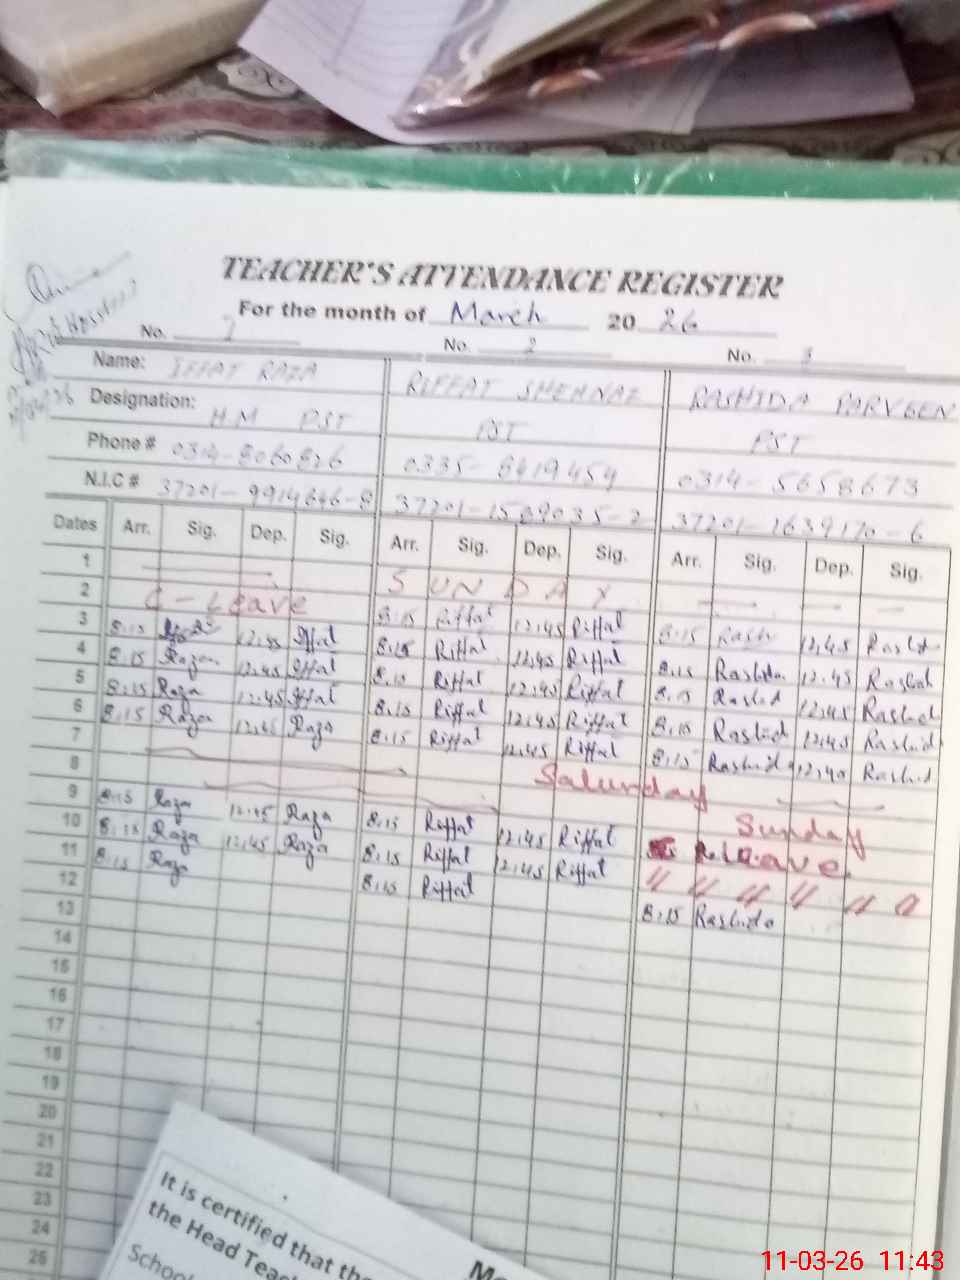 TEACHER'S ATTENDANCE REGISTER
For the month of March 20 26
No. 1 No. 2 No. 3
Name: IFFAT RAZA RIFFAT SHEHNAZ RASHIDA PARVEEN
Designation: HM PST PST PST
Phone # 0314-8060826 0335-8419459 0314-5658673
N.I.C # 37201-9914646-8 37201-1589035-2 37201-1639170-6
Dates Arr. Sig. Dep. Sig. Arr. Sig. Dep. Sig. Arr. Sig. Dep. Sig.
1 SUNDAY
2 C-Leave 8:15 Riffat 12:45 Riffat 8:15 Rash 12:45 Rashid
3 8:15 12:45 Iffat 8:15 Riffat 12:45 Riffat 8:15 Rashida 12:45 Rashid
4 8:15 Raza 12:45 Iffat 8:15 Riffat 12:45 Riffat 8:15 Rashid 12:45 Rashid
5 8:15 Raza 12:45 Iffat 8:15 Riffat 12:45 Riffat 8:15 Rashid 12:45 Rashid
6 8:15 Raza 12:45 Raza 8:15 Riffat 12:45 Riffat 8:15 Rashid 12:40 Rashid
7 Saturday
8 Sunday
9 8:15 Raza 12:45 Raza 8:15 Riffat 12:45 Riffat Leave
10 8:15 Raza 12:45 Raza 8:15 Riffat 12:45 Riffat 〃 〃 〃 〃 〃
11 8:15 Raza 8:15 Riffat 8:15 Rashida
12
13
14
15
16
17
18
19
20
21
22
23
24
25
It is certified that the
the Head Teac
School
11-03-26 11:43